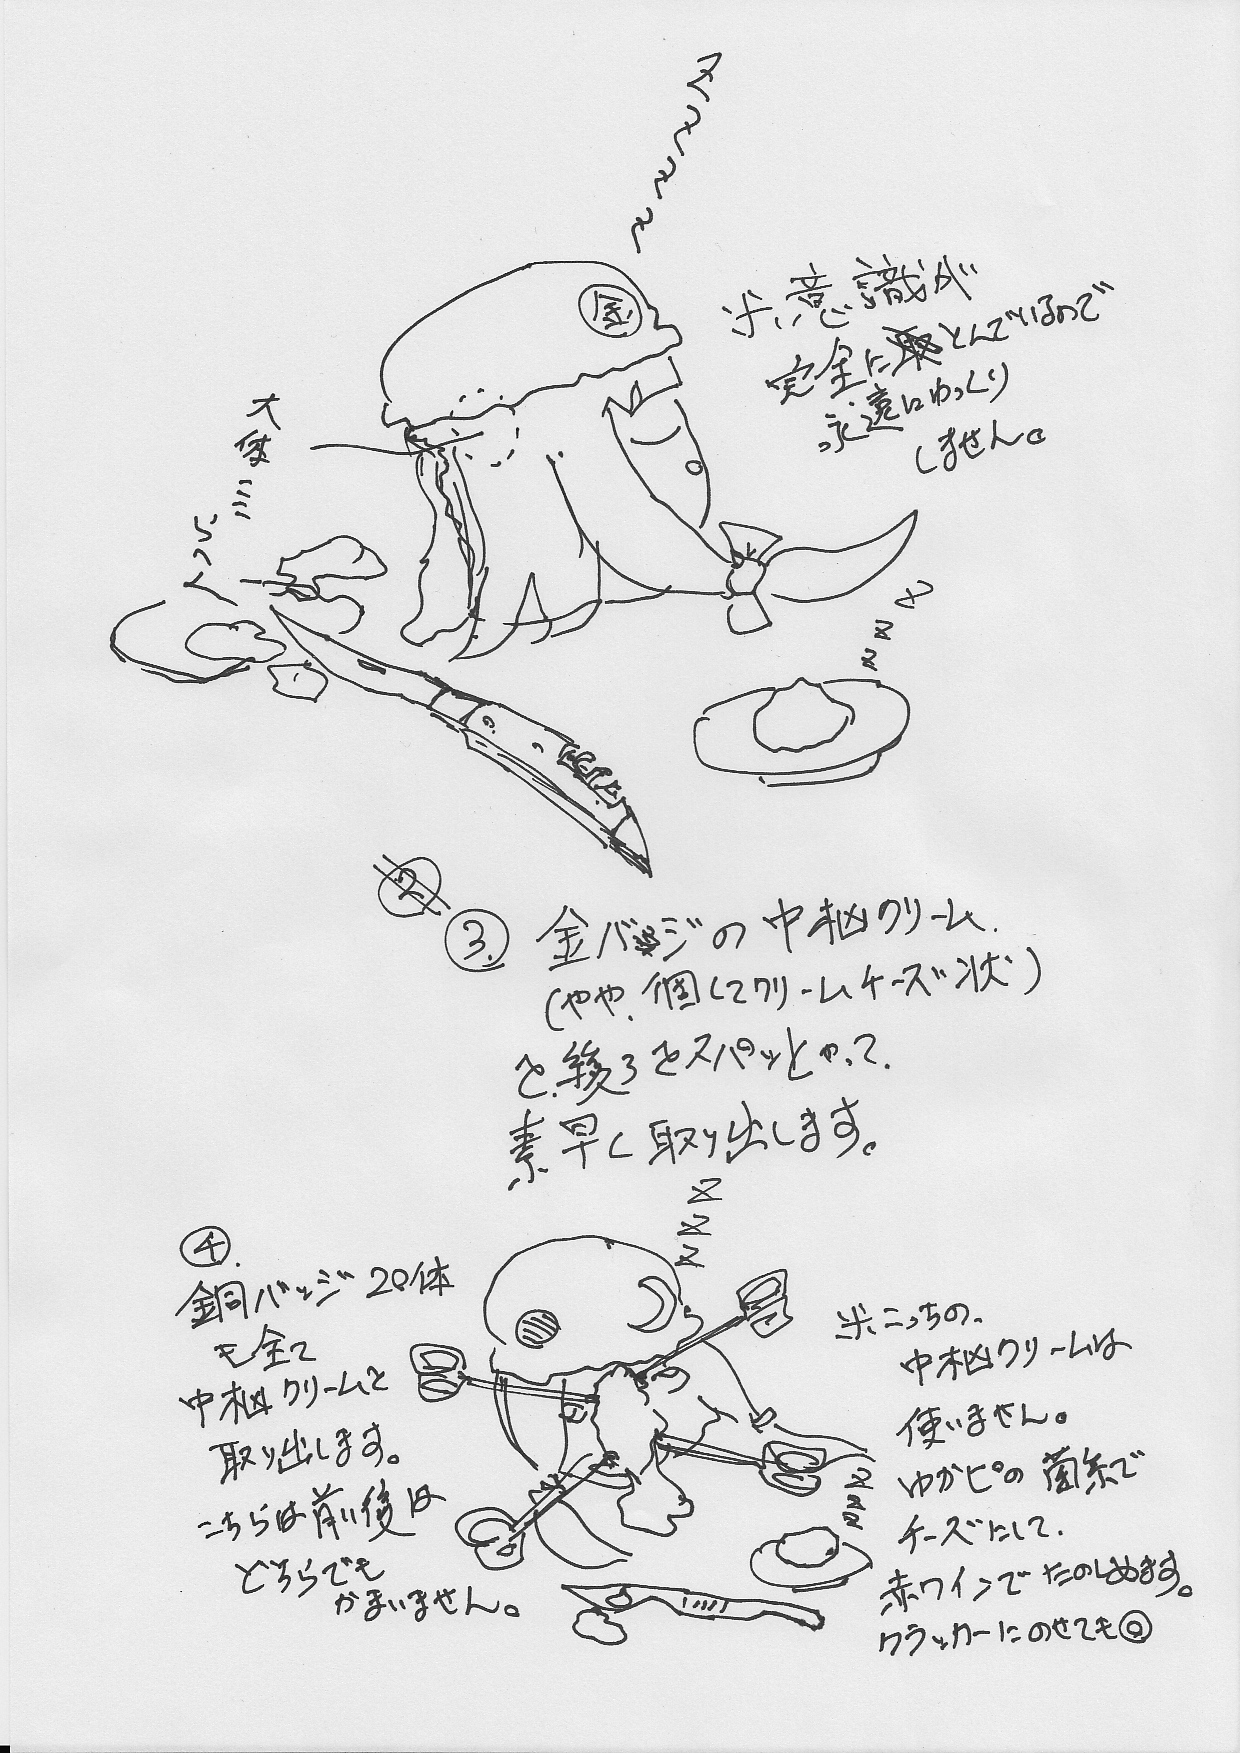 金
※意識が
完全にとんでいるので
永遠にゆっくり
しません。
大変
②
③. 金バッジの中枢クリーム
(やや、個してクリームチーズ状)
を、後ろをスパッとやって、
素早く取り出します。
zzz
④.
銅バッジ20体
も全て
中枢クリームを
取り出します。
こちらは前後は
どちらでも
かまいません。
※こっちの、
中枢クリームは
使いません。
ゆかピの菌糸で
チーズにして、
赤ワインでたのしめます。
クラッカーにのせても◎